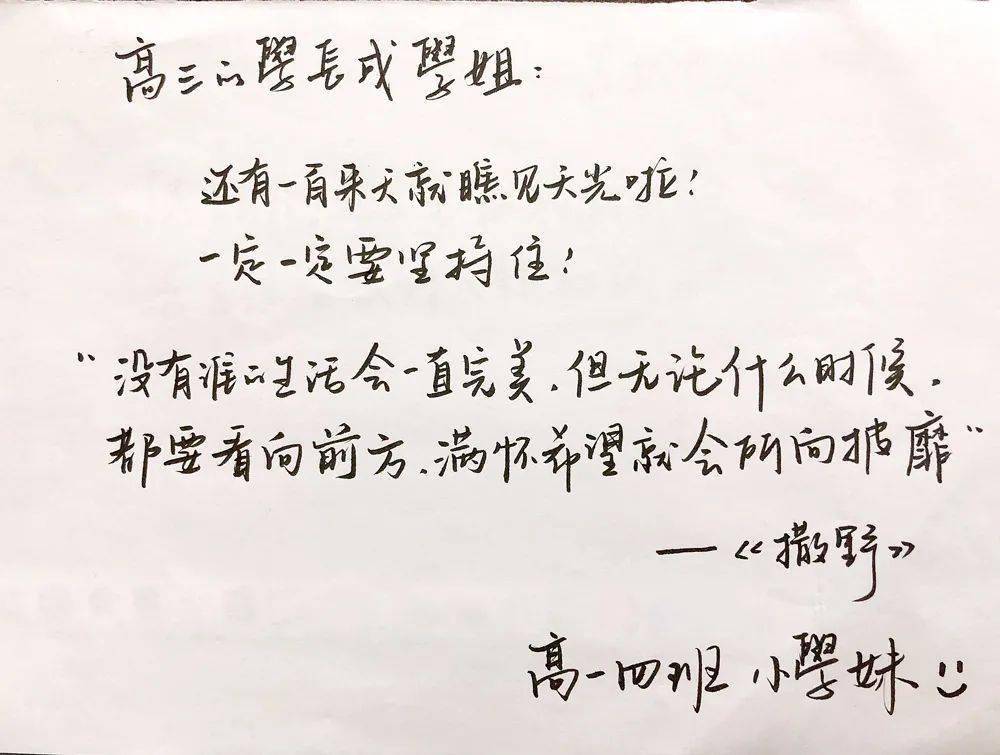 高三的學長或學姐：
还有一百来天就瞧见天光啦！
一定一定要坚持住！
“没有谁的生活会一直完美，但无论什么时候，
都要看向前方，满怀希望就会所向披靡”
——《撒野》
高一四班 小學妹